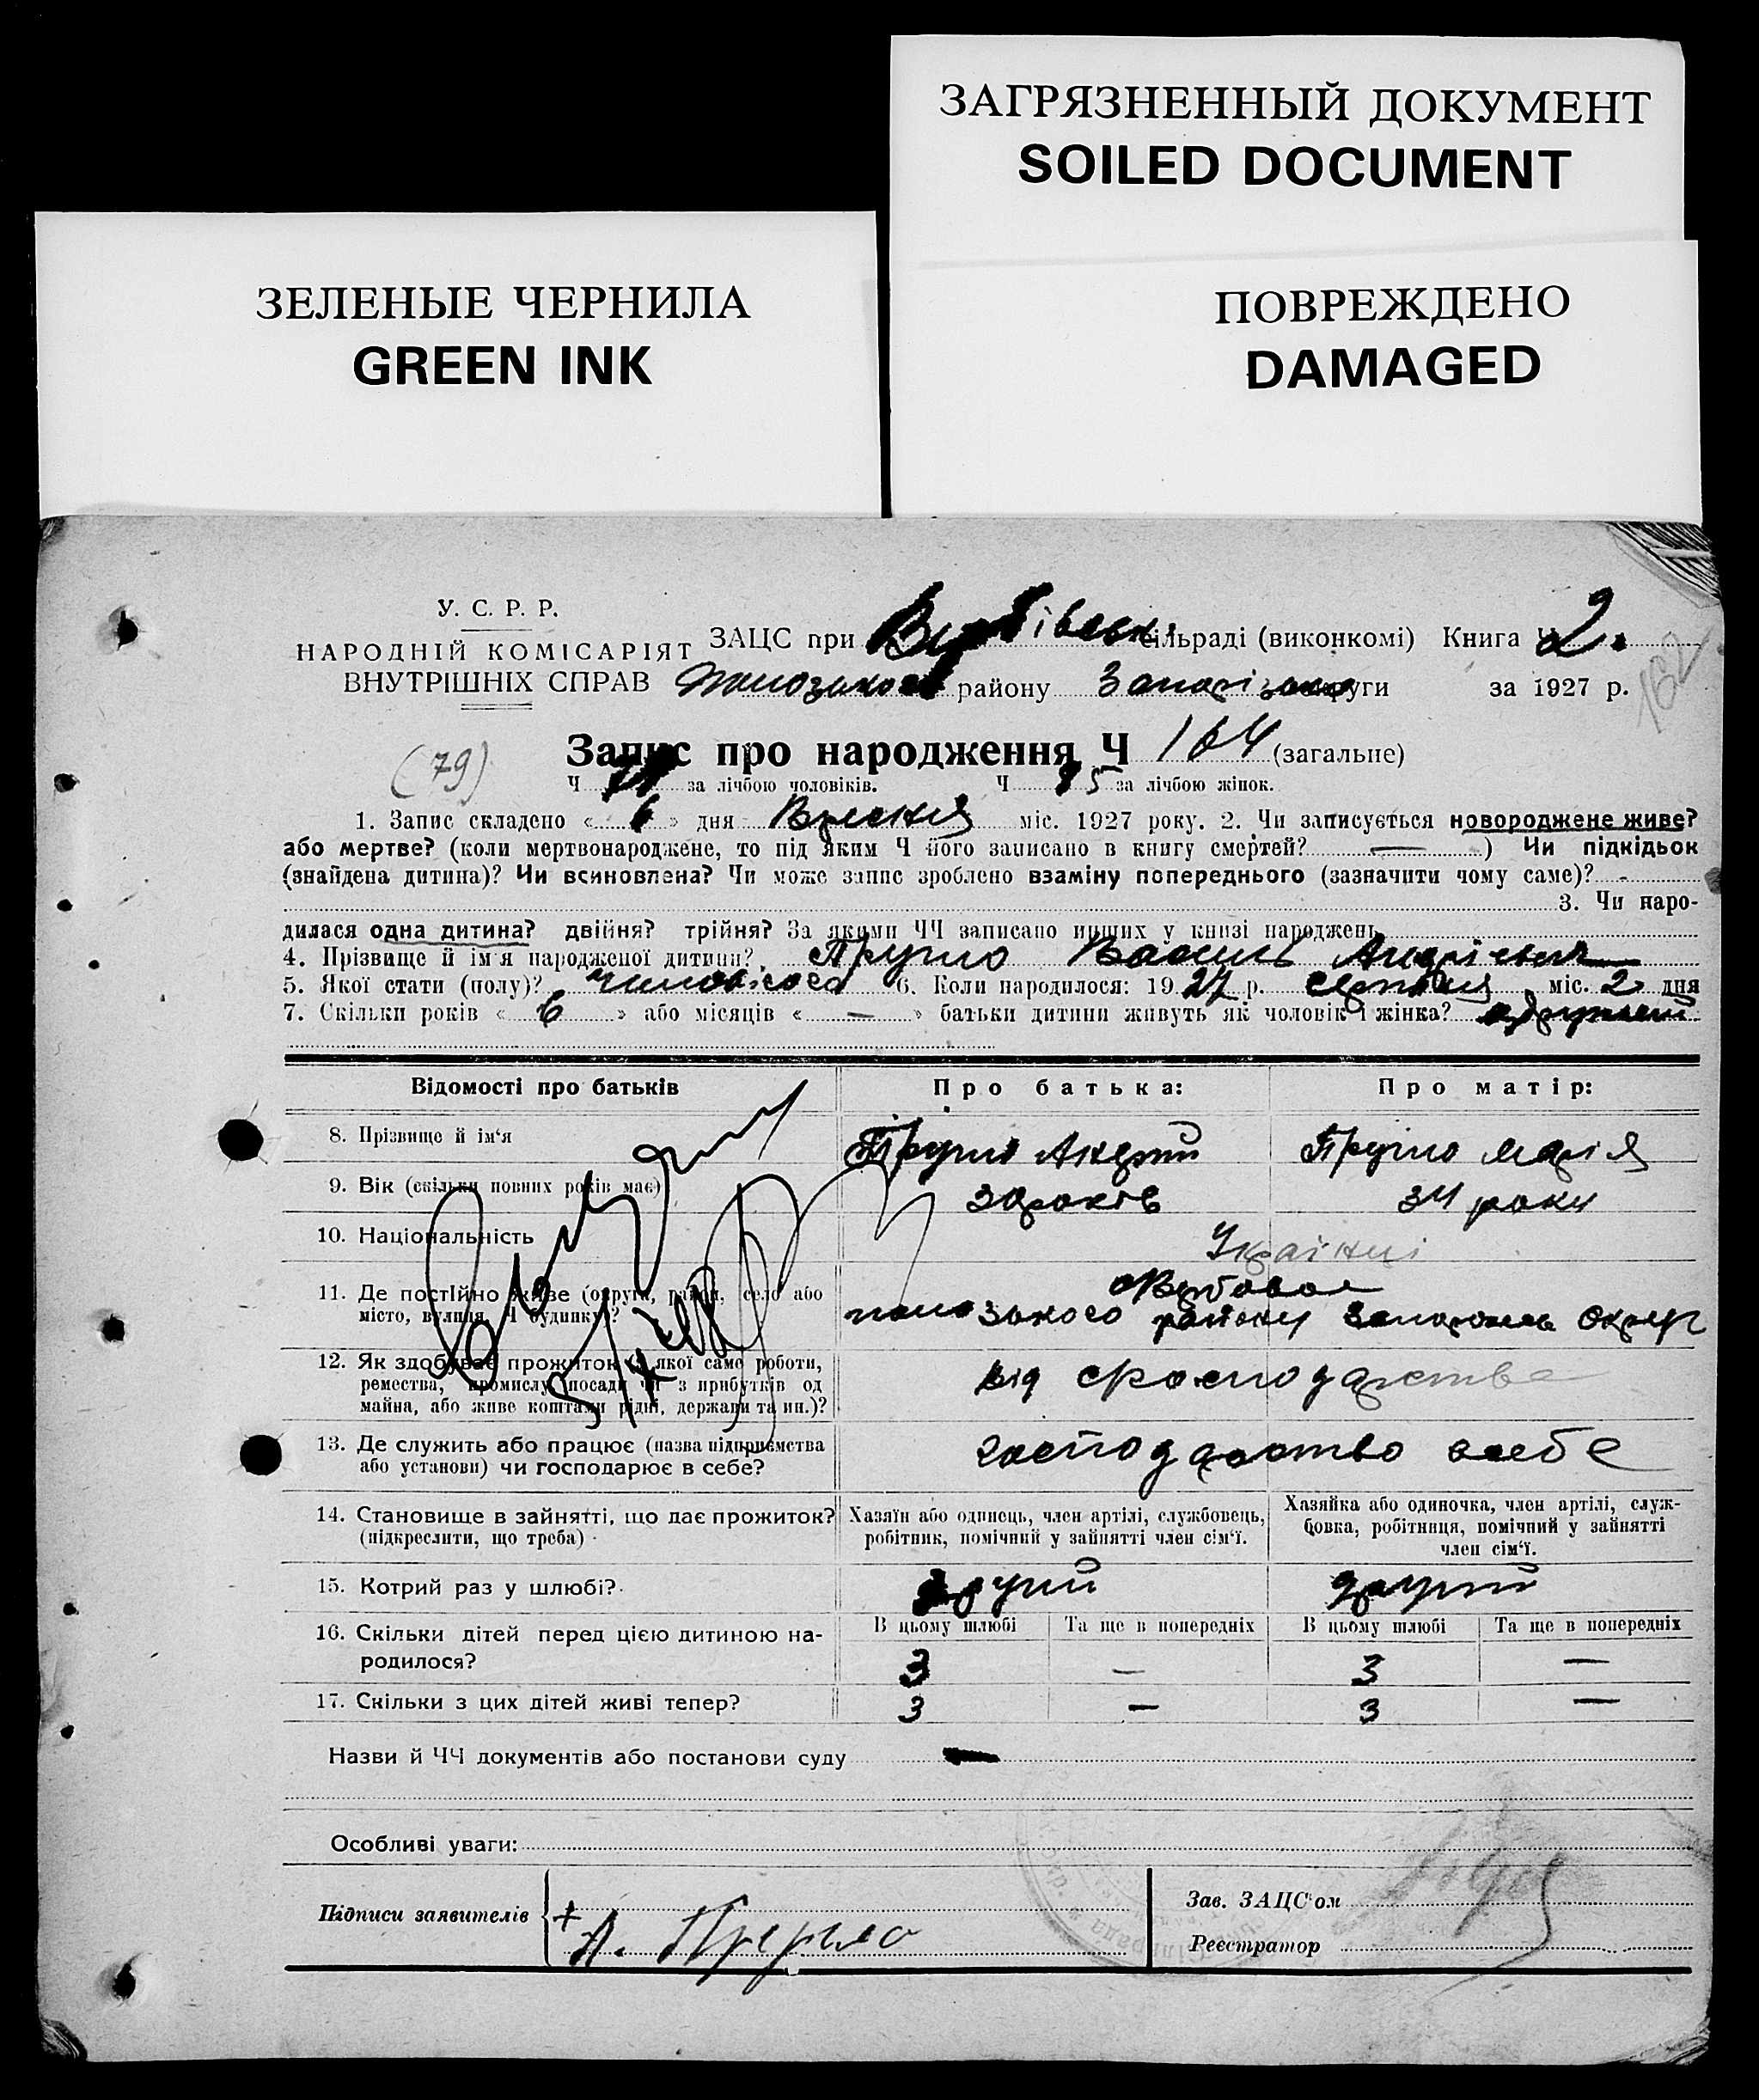 ЗАГРЯЗНЕННЫЙ ДОКУМЕНТ
SOILED DOCUMENT
ЗЕЛЕНЫЕ ЧЕРНИЛА
GREEN INK
ПОВРЕЖДЕНО
DAMAGED
У. С. Р. Р.
НАРОДНІЙ КОМІСАРІЯТ
ВНУТРІШНІХ СПРАВ
ЗАЦС при сільраді (виконкомі) Книга Ч 2.
району округи за 1927 р.
162
Запис про народження Ч 164 (загальне)
(79)
Ч за лічбою чоловіків. Ч 85 за лічбою жінок.
1. Запис складено « 6 » дня Вресня міс. 1927 року. 2. Чи записується новороджене живе?
або мертве? (коли мертвонароджене, то під яким Ч його записано в книгу смертей? — ) Чи підкідьок
(знайдена дитина)? Чи всиновлена? Чи може запис зроблено взаміну попереднього (зазначити чому саме)? -
3. Чи наро-
дилася одна дитина? двійня? трійня? За якими ЧЧ записано инших у книзі народжень
4. Прізвище й ім'я народженої дитини? Василь Андрієвич
5. Якої стати (полу)? 6. Коли народилося: 1927 р. Серпня міс. 2 дня
7. Скільки років « 6 » або місяців « — » батьки дитини живуть як чоловік і жінка?
Відомості про батьків Про батька: Про матір:
8. Прізвище й ім'я Андрий Марія
9. Вік (скільки повних років має) років 34 роки
10. Національність Українці
11. Де постійно живе (округа, район, село або
місто, вулиця, Ч будинку)? району округ
12. Як здобуває прожиток (з якої само роботи,
ремества, промислу, посади чи з прибутків од
майна, або живе коштами рідні, держави та ин.)?
від
13. Де служить або працює (назва підприємства
або установи) чи господарює в себе?
господарство в себе
14. Становище в зайнятті, що дає прожиток?
(підкреслити, що треба)
Хазяїн або одинець, член артілі, службовець,
робітник, помічний у зайнятті член сім'ї.
Хазяйка або одиночка, член артілі, служ-
бовка, робітниця, помічний у зайнятті
член сім'ї.
15. Котрий раз у шлюбі? другий другий
16. Скільки дітей перед цією дитиною на-
родилося?
В цьому шлюбі Та ще в попередніх В цьому шлюбі Та ще в попередніх
3 — 3 —
17. Скільки з цих дітей живі тепер? 3 — 3 —
Назви й ЧЧ документів або постанови суду —
Особливі уваги:
Підписи заявителів + А.
Зав. ЗАЦС'ом
Реєстратор